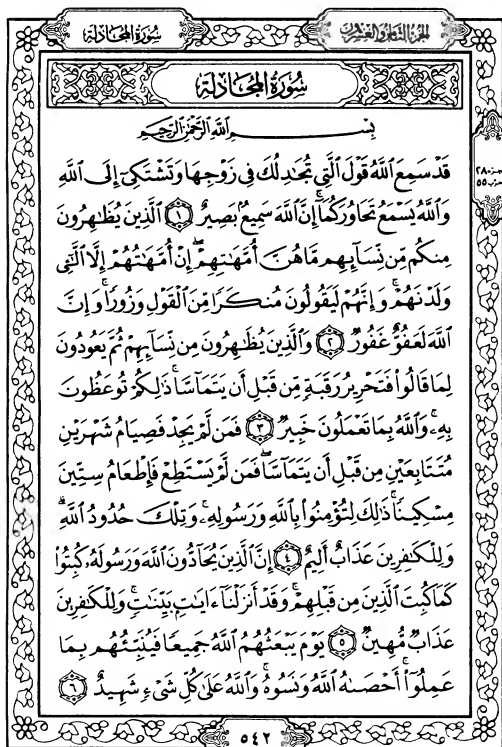 الجزء الثامن والعشرون
سُورَةُ المُجَادلَة
سُورَةُ المُجَادلَة
بِسْمِ اللَّهِ الرَّحْمَٰنِ الرَّحِيمِ
قَدْ سَمِعَ اللَّهُ قَوْلَ الَّتِي تُجَٰدِلُكَ فِي زَوْجِهَا وَتَشْتَكِيٓ إِلَى اللَّهِ
وَاللَّهُ يَسْمَعُ تَحَاوُرَكُمَآ ۚ إِنَّ اللَّهَ سَمِيعٌۢ بَصِيرٌ ١ الَّذِينَ يُظَٰهِرُونَ
مِنكُم مِّن نِّسَآئِهِم مَّا هُنَّ أُمَّهَٰتِهِمْ ۖ إِنْ أُمَّهَٰتُهُمْ إِلَّا الَّٰٓـِٔي
وَلَدْنَهُمْ ۚ وَإِنَّهُمْ لَيَقُولُونَ مُنكَرًا مِّنَ الْقَوْلِ وَزُورًا ۚ وَإِنَّ
اللَّهَ لَعَفُوٌّ غَفُورٌ ٢ وَالَّذِينَ يُظَٰهِرُونَ مِن نِّسَآئِهِمْ ثُمَّ يَعُودُونَ
لِمَا قَالُوا۟ فَتَحْرِيرُ رَقَبَةٍ مِّن قَبْلِ أَن يَتَمَآسَّا ۚ ذَٰلِكُمْ تُوعَظُونَ
بِهِۦ ۚ وَاللَّهُ بِمَا تَعْمَلُونَ خَبِيرٌ ٣ فَمَن لَّمْ يَجِدْ فَصِيَامُ شَهْرَيْنِ
مُتَتَابِعَيْنِ مِن قَبْلِ أَن يَتَمَآسَّا ۖ فَمَن لَّمْ يَسْتَطِعْ فَإِطْعَامُ سِتِّينَ
مِسْكِينًا ۚ ذَٰلِكَ لِتُؤْمِنُوا۟ بِاللَّهِ وَرَسُولِهِۦ ۚ وَتِلْكَ حُدُودُ اللَّهِ ۗ
وَلِلْكَٰفِرِينَ عَذَابٌ أَلِيمٌ ٤ إِنَّ الَّذِينَ يُحَآدُّونَ اللَّهَ وَرَسُولَهُۥ كُبِتُوا۟
كَمَا كُبِتَ الَّذِينَ مِن قَبْلِهِمْ ۚ وَقَدْ أَنزَلْنَآ ءَايَٰتٍۭ بَيِّنَٰتٍ ۚ وَلِلْكَٰفِرِينَ
عَذَابٌ مُّهِينٌ ٥ يَوْمَ يَبْعَثُهُمُ اللَّهُ جَمِيعًا فَيُنَبِّئُهُم بِمَا
عَمِلُوٓا۟ ۚ أَحْصَىٰهُ اللَّهُ وَنَسُوهُ ۚ وَاللَّهُ عَلَىٰ كُلِّ شَيْءٍ شَهِيدٌ ٦
٥٤٢